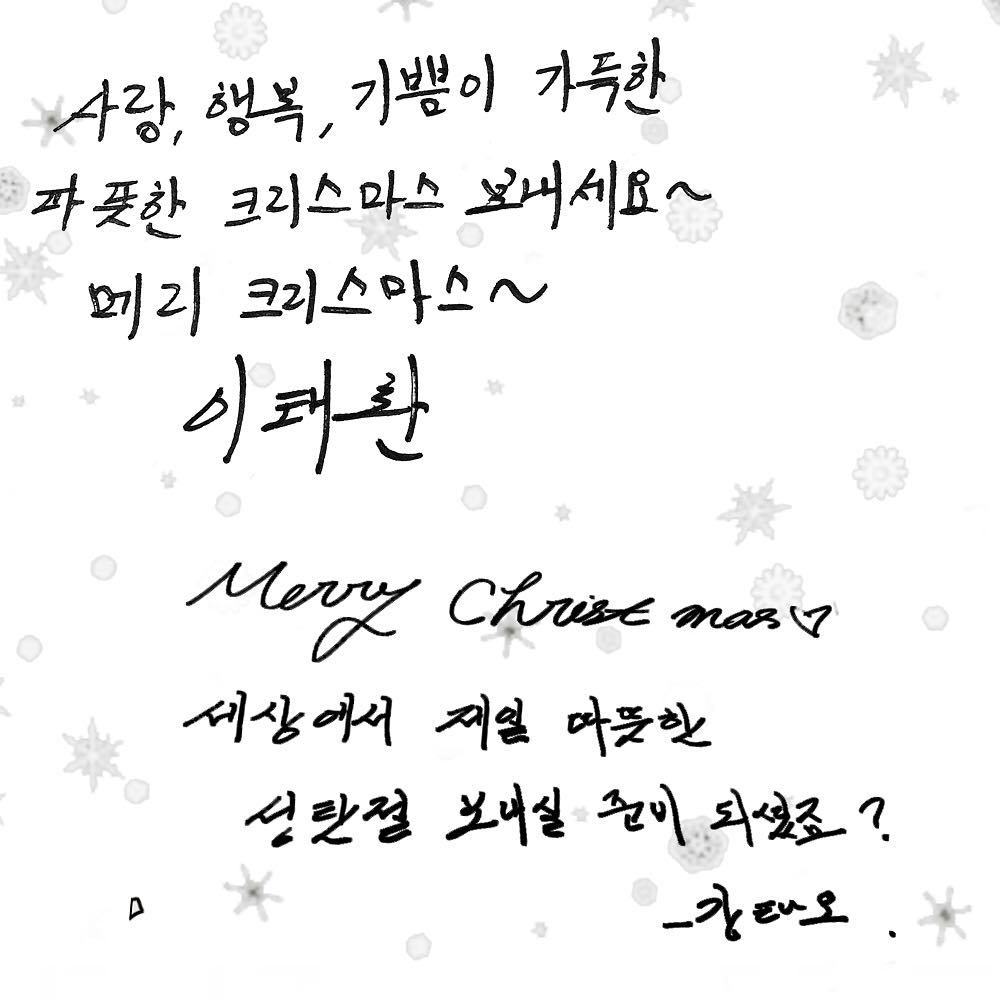 사랑, 행복, 기쁨이 가득한
따뜻한 크리스마스 보내세요~
메리 크리스마스~
이태환
Merry Christmas♡
세상에서 제일 따뜻한
성탄절 보내실 준비 되셨죠?
-강태오.